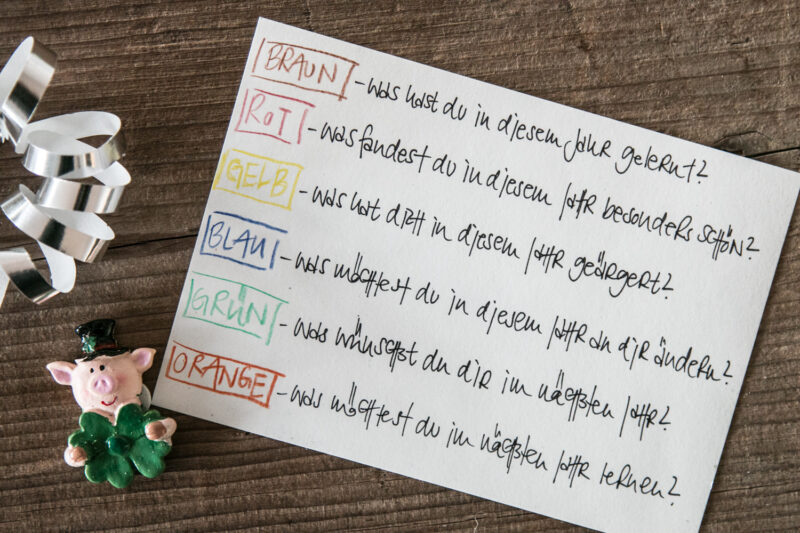 BRAUN - was hast du in diesem Jahr gelernt?
ROT - was fandest du in diesem Jahr besonders schön?
GELB - was hat dich in diesem Jahr geärgert?
BLAU - was möchtest du in diesem Jahr an dir ändern?
GRÜN - was wünschst du dir im nächsten Jahr?
ORANGE - was möchtest du im nächsten Jahr lernen?